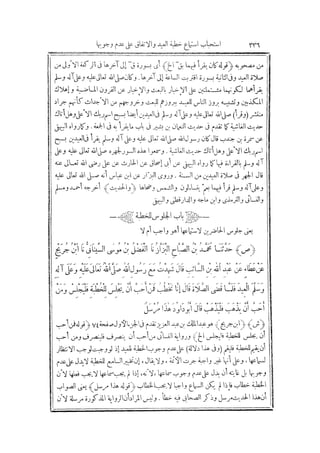 ٢٣٦ استحباب استماع خطبة العيد والاتفاق على عدم وجوبها
من مصحوبه (قوله كان يقرأ فيهما بق الخ) أى بسورة ق إلى آخرها فى الركعة الأولى من
صلاة العيد وفى الثانية بسورة اقتربت الساعة إلى آخرها. وكان صلى الله تعالى عليه وعلى آله وسلم
يقرأهما لكونهما مشتملتين على الإخبار بالبعث والإخبار عن القرون الماضية وإهلاك
المكذبين وتشبيه بروز الناس للعيد ببروزهم للبعث وخروجهم من الأجداث كأنهم جراد
منتشر (وقرأ) صلى الله تعالى عليه وعلى آله وسلم فى العيدين أيضا بسبح اسم ربك الأعلى وهل أتاك
حديث الغاشية كما تقدم فى حديث النعمان بن بشير فى باب ما يقرأ به فى الجمعة. وكما رواه البيهقى
عن سمرة بن جندب قال كان رسول الله صلى الله تعالى عليه وعلى آله وسلم يقرأ فى العيدين بسبح
اسم ربك الأعلى وهل أتاك حديث الغاشية. وسمعوا هذه السور لجهره صلى الله تعالى عليه وعلى
آله وسلم بالقراءة فيها كما رواه البيهقى عن أبى إسحاق عن الحارث عن على رضى الله تعالى عنه
قال الجهر فى صلاة العيدين من السنة. وروى البزار عن ابن عباس أنه صلى الله تعالى عليه
وعلى آله وسلم قرأ فيهما بعم يتساءلون والشمس وضحاها (والحديث) أخرجه أحمد ومسلم
والنسائى والترمذى وابن ماجه والدارقطنى والبيهقى
باب الجلوس للخطبة
يعنى جلوس الحاضرين لاستماعها أهو واجب أم لا
(ص) حَدَّثَنَا مُحَمَّدُ بْنُ الصَّبَّاحِ الْبَزَّازُ نَا الْفَضْلُ بْنُ مُوسَى السِّينَانِىُّ نَا ابْنُ جُرَيْجٍ
عَنْ عَطَاءٍ عَنْ عَبْدِ اللهِ بْنِ السَّائِبِ قَالَ شَهِدْتُ مَعَ رَسُولِ اللهِ صَلَّى اللهُ تَعَالَى عَلَيْهِ وَعَلَى آلِهِ
وَسَلَّمَ الْعِيدَ فَلَمَّا قَضَى الصَّلَاةَ قَالَ إِنَّا نَخْطُبُ فَمَنْ أَحَبَّ أَنْ يَجْلِسَ لِلْخُطْبَةِ فَلْيَجْلِسْ وَمَنْ
أَحَبَّ أَنْ يَذْهَبَ فَلْيَذْهَبْ قَالَ أَبُو دَاوُدَ هَذَا مُرْسَلٌ
(ش) (ابن جريج) هو عبد الملك بن عبد العزيز تقدم فى الجزء الأول صفحة ٧٤ (قوله فمن أحب
أن يجلس للخطبة فليجلس الخ) ورواية النسائى من أحب أن ينصرف فلينصرف ومن أحب
أن يقيم للخطبة فليقم (وفى هذا دلالة) على عدم وجوب الخطبة للعيد إذ لو وجبت لوجب الانتظار
لسماعها. وعلى أنها غير واجبة جرت الأئمة. ولا يقال. إن تخيير السامع للخطبة لا يدل على عدم
وجوبها بل غايته أن يدل على عدم وجوب سماعها. لأنه. إذا لم يجب سماعها لا يجب فعلها لأن
الخطبة خطاب فإذا لم يكن السماع واجبا لا يجب الخطاب (قوله هذا مرسل) يعنى الصواب
أن هذا الحديث مرسل وذكر الصحابى فيه خطأ. وليس المراد أن الرواية المذكورة مرسلة لأن